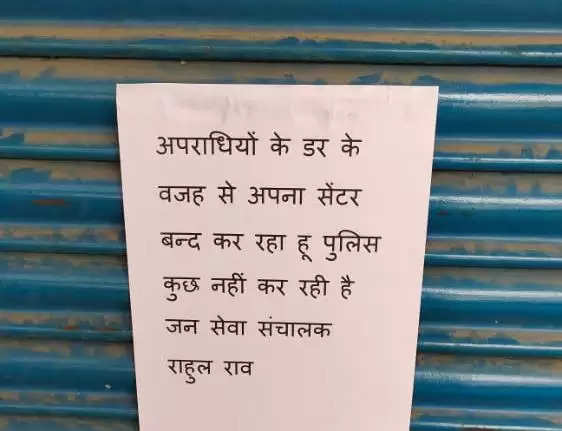 अपराधियों के डर के
वजह से अपना सेंटर
बन्द कर रहा हू पुलिस
कुछ नहीं कर रही है
जन सेवा संचालक
राहुल राव